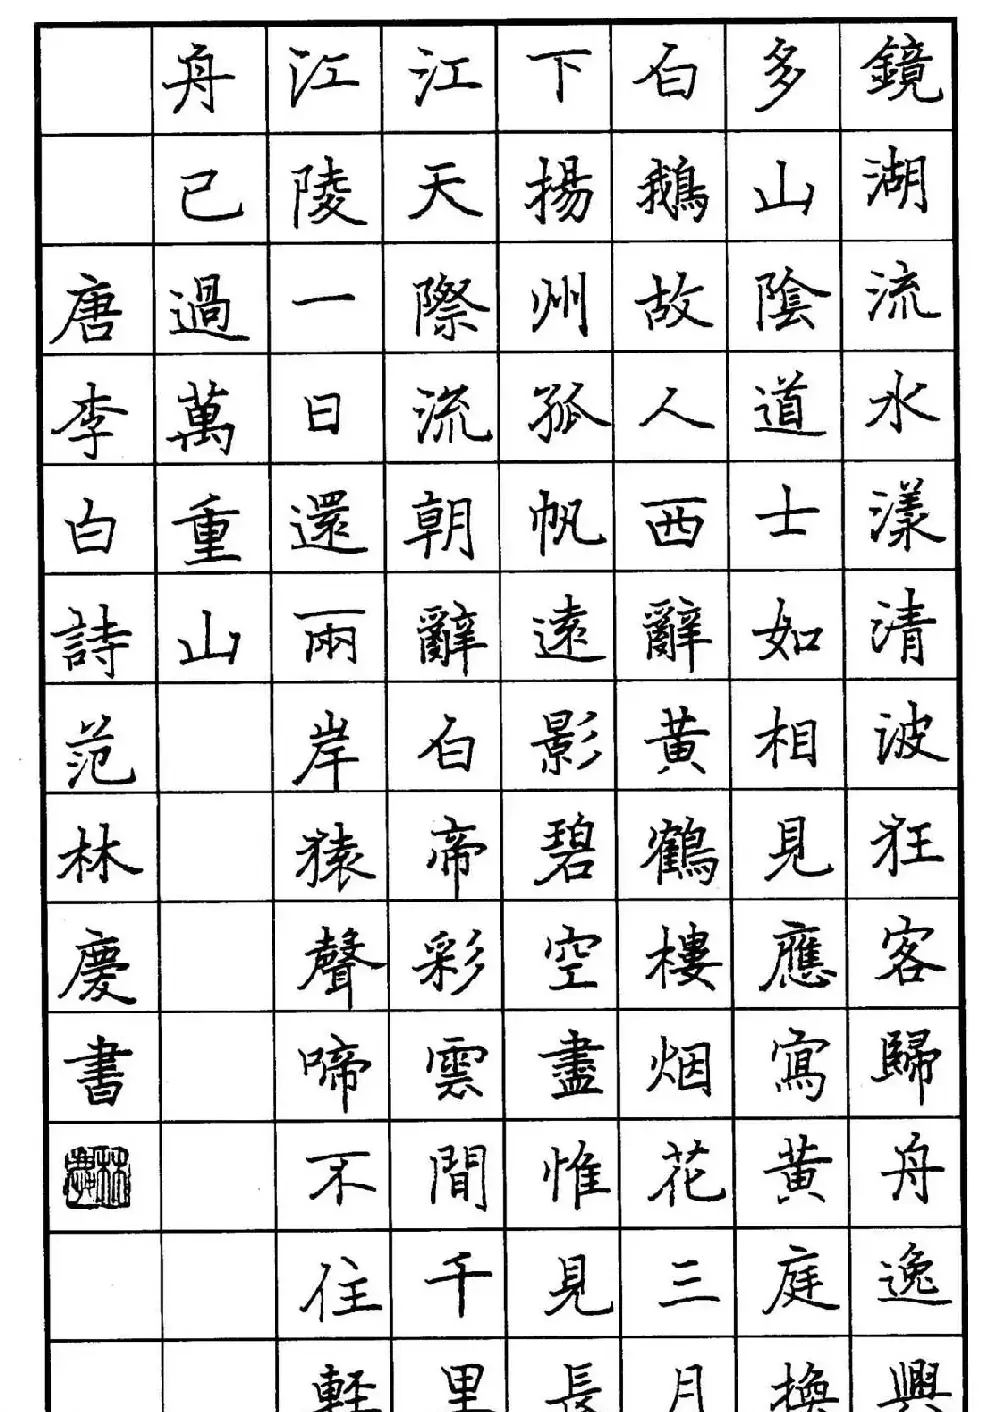 鏡湖流水漾清波狂客歸舟逸興
多山陰道士如相見應寫黃庭換
白鵝故人西辭黃鶴樓烟花三月
下揚州孤帆遠影碧空盡惟見長
江天際流朝辭白帝彩雲間千里
江陵一日還兩岸猿聲啼不住輕
舟已過萬重山
唐李白詩范林慶書
林慶